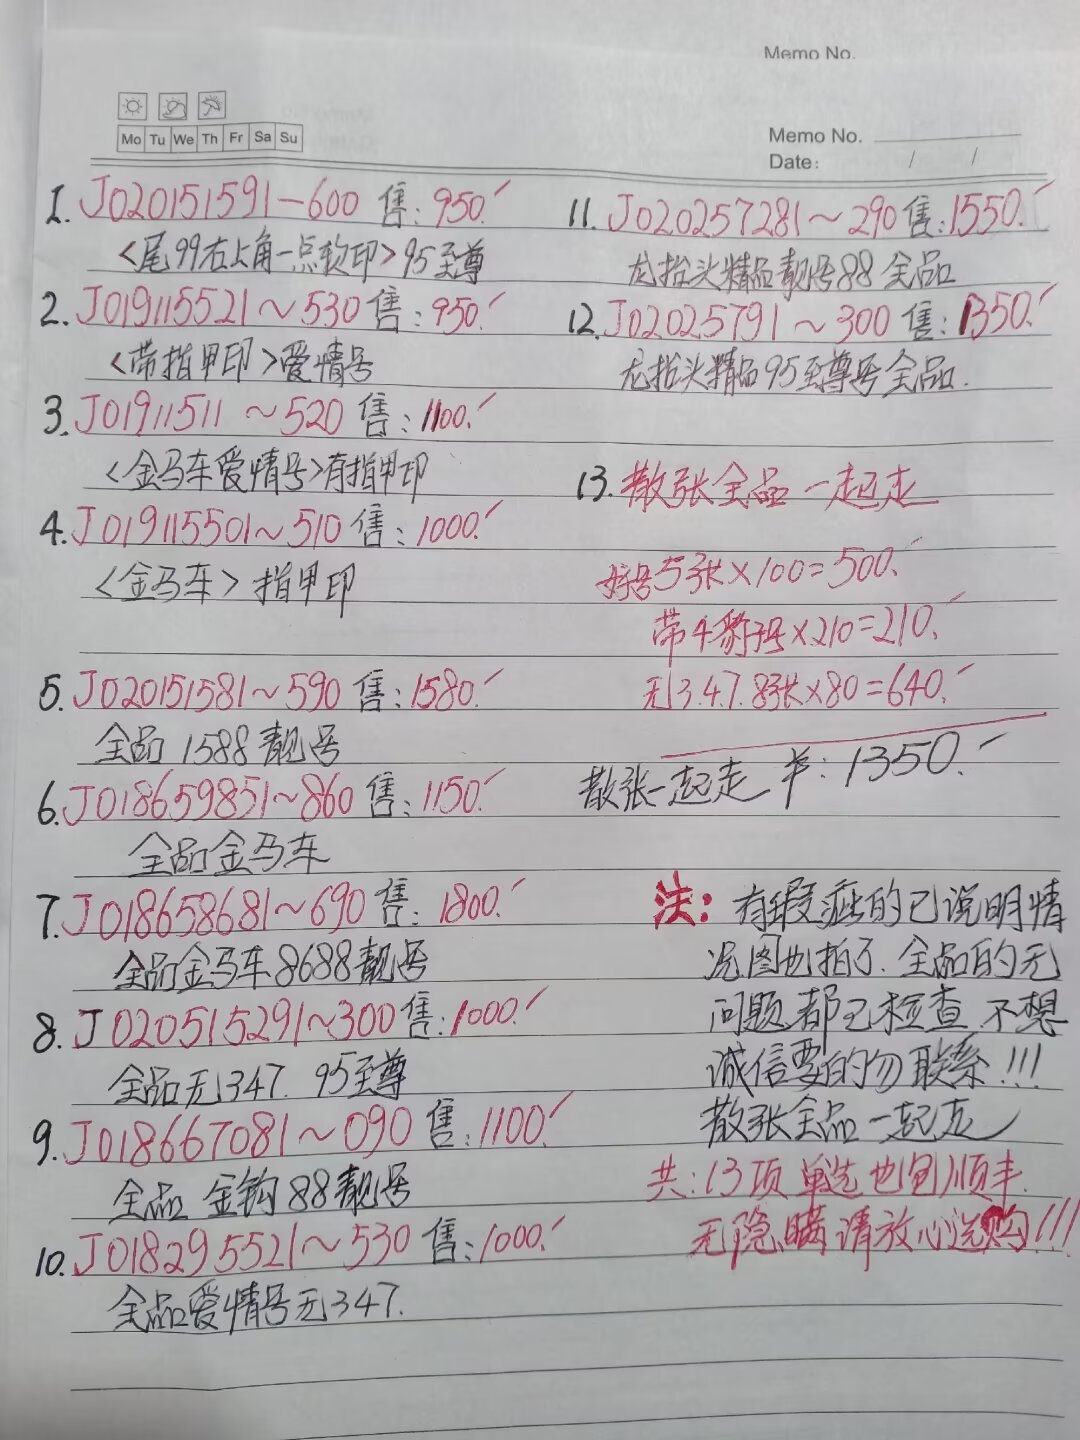 Memo No.
Mo Tu We Th Fr Sa Su
Memo No.
Date: / /
1. J020151591-600 售:950.
<尾99右上角一点软印>95至尊
2. J019115521~530售:950.
<带指甲印>爱情号
3. J01911511~520售:1100.
<金马车爱情号>有指甲印
4. J019115501~510售:1000.
<金马车>指甲印
5. J020151581~590售:1580.
全品 1588靓号
6. J018659851~860售:1150.
全品金马车
7. J018658681~690售:1800.
全品金马车8688靓号
8. J020515291~300售:1000.
全品无347. 95至尊
9. J018667081~090售:1100.
全品 金钩88靓号
10. J018295521~530售:1000.
全品爱情号无347.
11. J020257281~290售:1550.
龙抬头精品靓号88全品
12. J02025791~300售:1350.
龙抬头精品95至尊号全品.
13. 散张全品一起走
好号5张×100=500.
带4豹子号×210=210.
无3.4.7.8张×80=640.
散张一起走 羊:1350.
注:有瑕疵的已说明情
况图也拍了.全品的无
问题都已检查 不想
诚信要的勿联系!!!
散张全品一起走
共:13项 单选也包顺丰.
无隐瞒请放心选购!!!